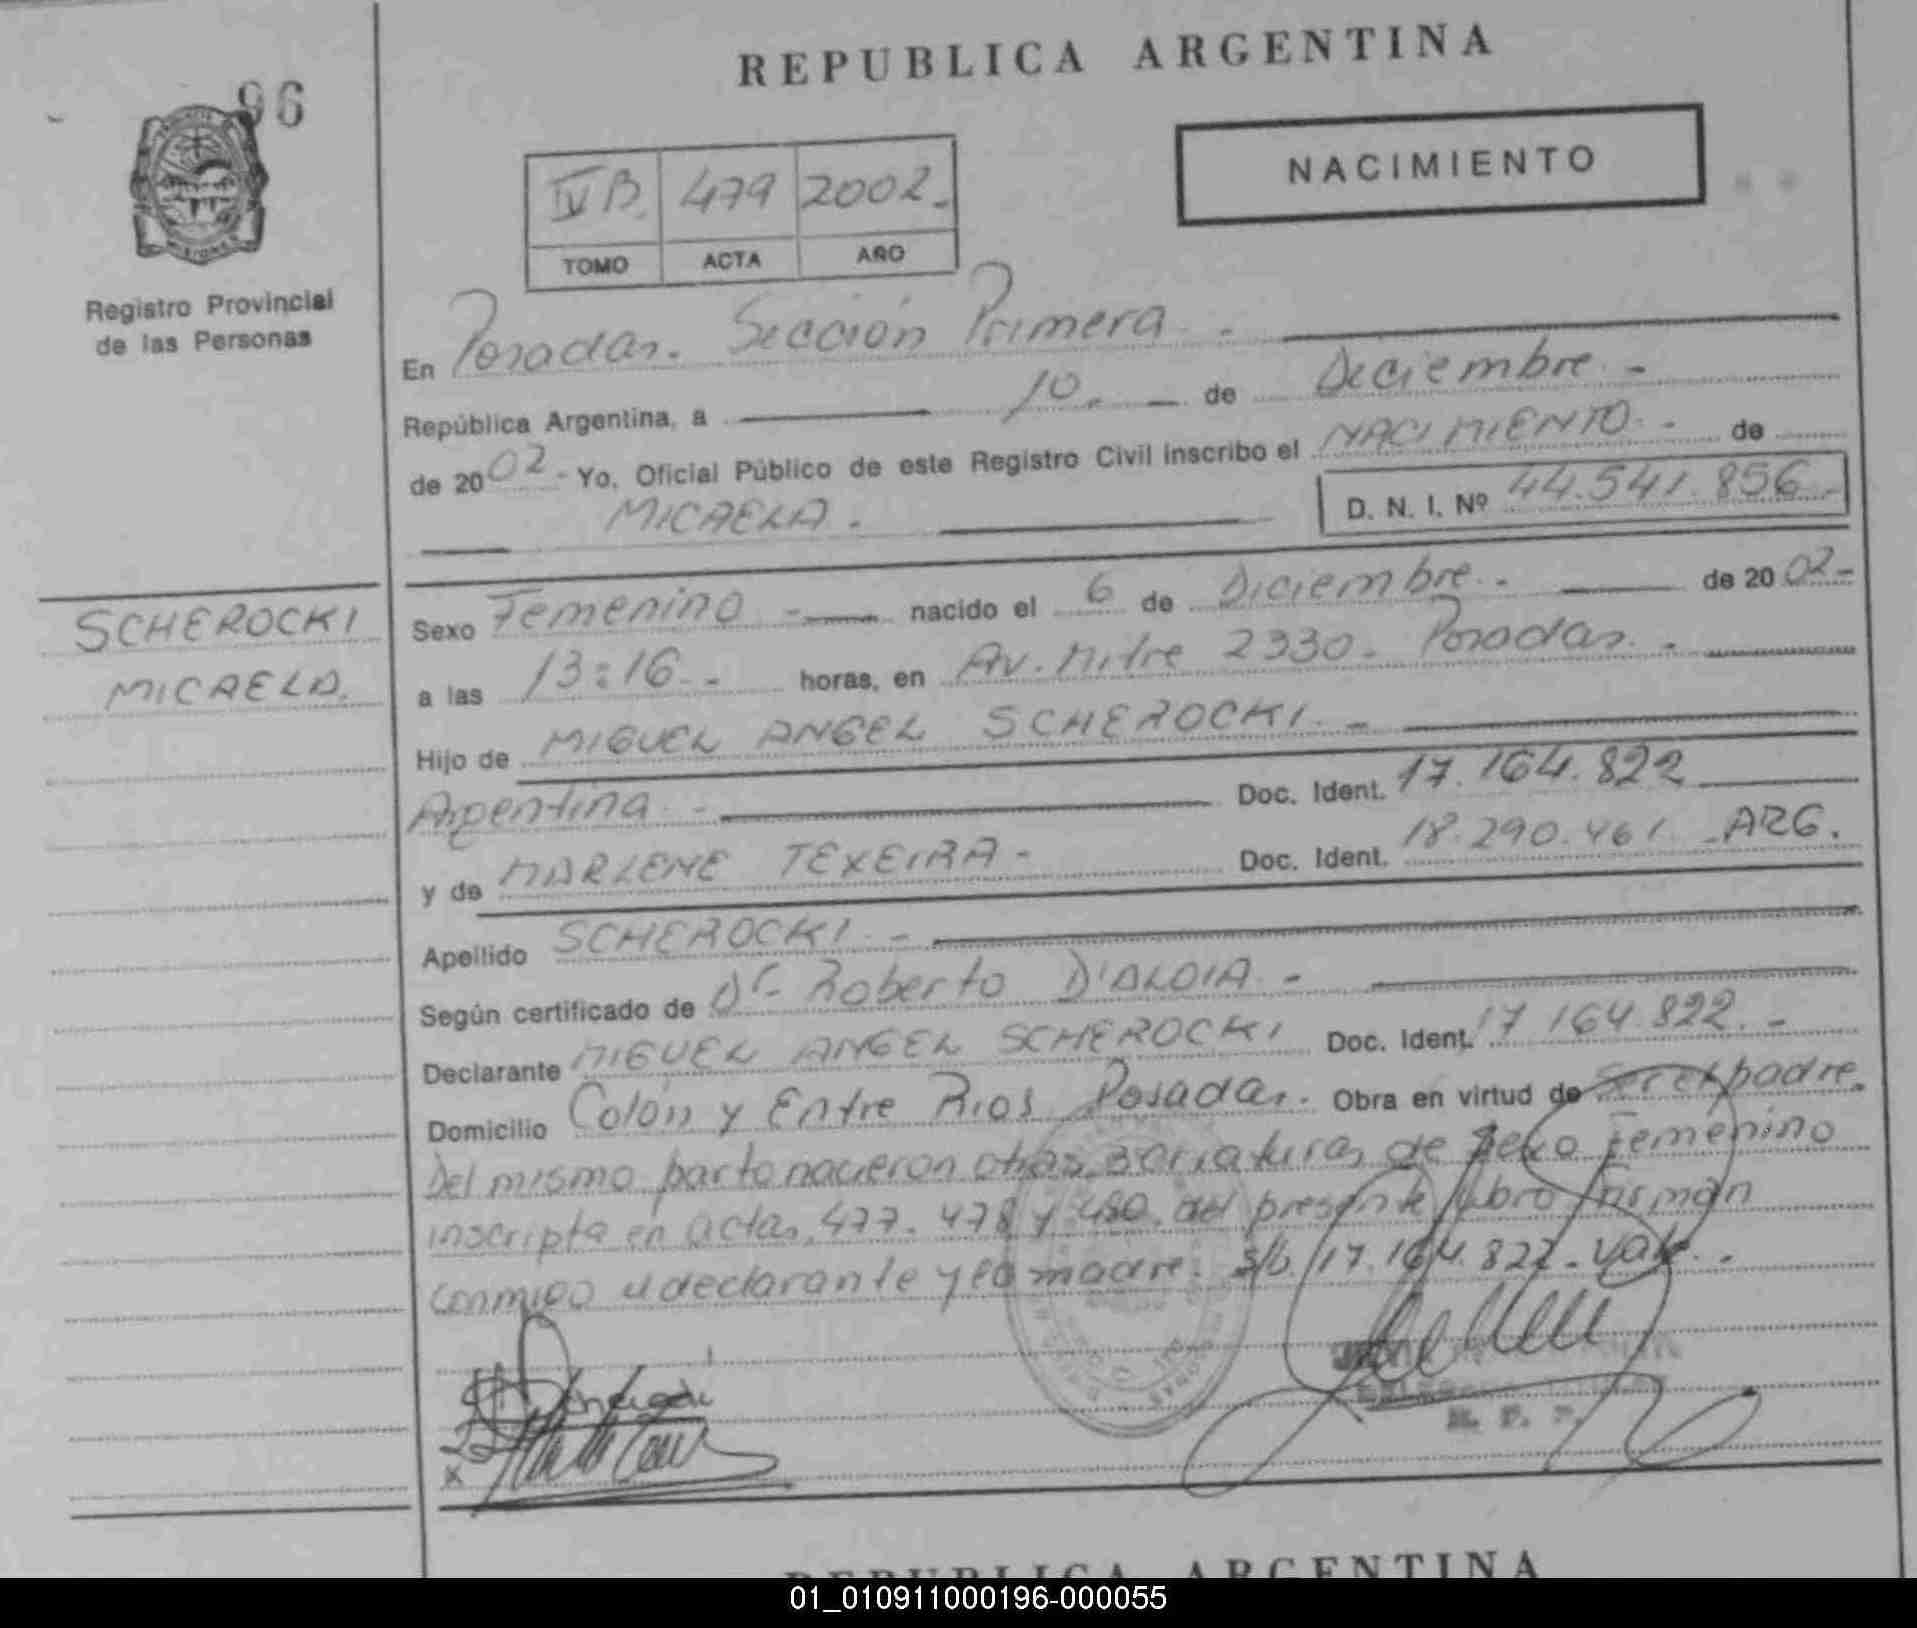 REPUBLICA ARGENTINA
96
NACIMIENTO
IVB. 479 2002.-
TOMO ACTA AÑO
Registro Provincial
de las Personas
En Posadas. Sección Primera.-
República Argentina, a 10.- de Diciembre.-
de 2002- Yo, Oficial Público de este Registro Civil inscribo el NACIMIENTO.- de
MICAELA.
D. N. I. Nº 44.541.856.-
SCHEROCKI
MICAELA.
Sexo Femenino - nacido el 6 de Diciembre.- de 2002-
a las 13:16.- horas, en Av. Mitre 2330. Posadas.-
Hijo de MIGUEL ANGEL SCHEROCKI.-
Argentina.- Doc. Ident. 17.164.822
y de MARLENE TEXEIRA- Doc. Ident. 18.290.461. ARG.
Apellido SCHEROCKI.-
Según certificado de Dr. Roberto D'ALOIA.-
Declarante MIGUEL ANGEL SCHEROCKI Doc. Ident. 17 164.822.-
Domicilio Colón y Entre Rios Posadas. Obra en virtud de ser el padre.
Del mismo parto nacieron otras 3 criaturas de sexo femenino
inscripta en actas 477. 478 y 480. del presente libro firman
conmigo el declarante y la madre. s/b. 17.164.822. vale.-
M. P. P.
REPUBLICA ARGENTINA
01_010911000196-000055